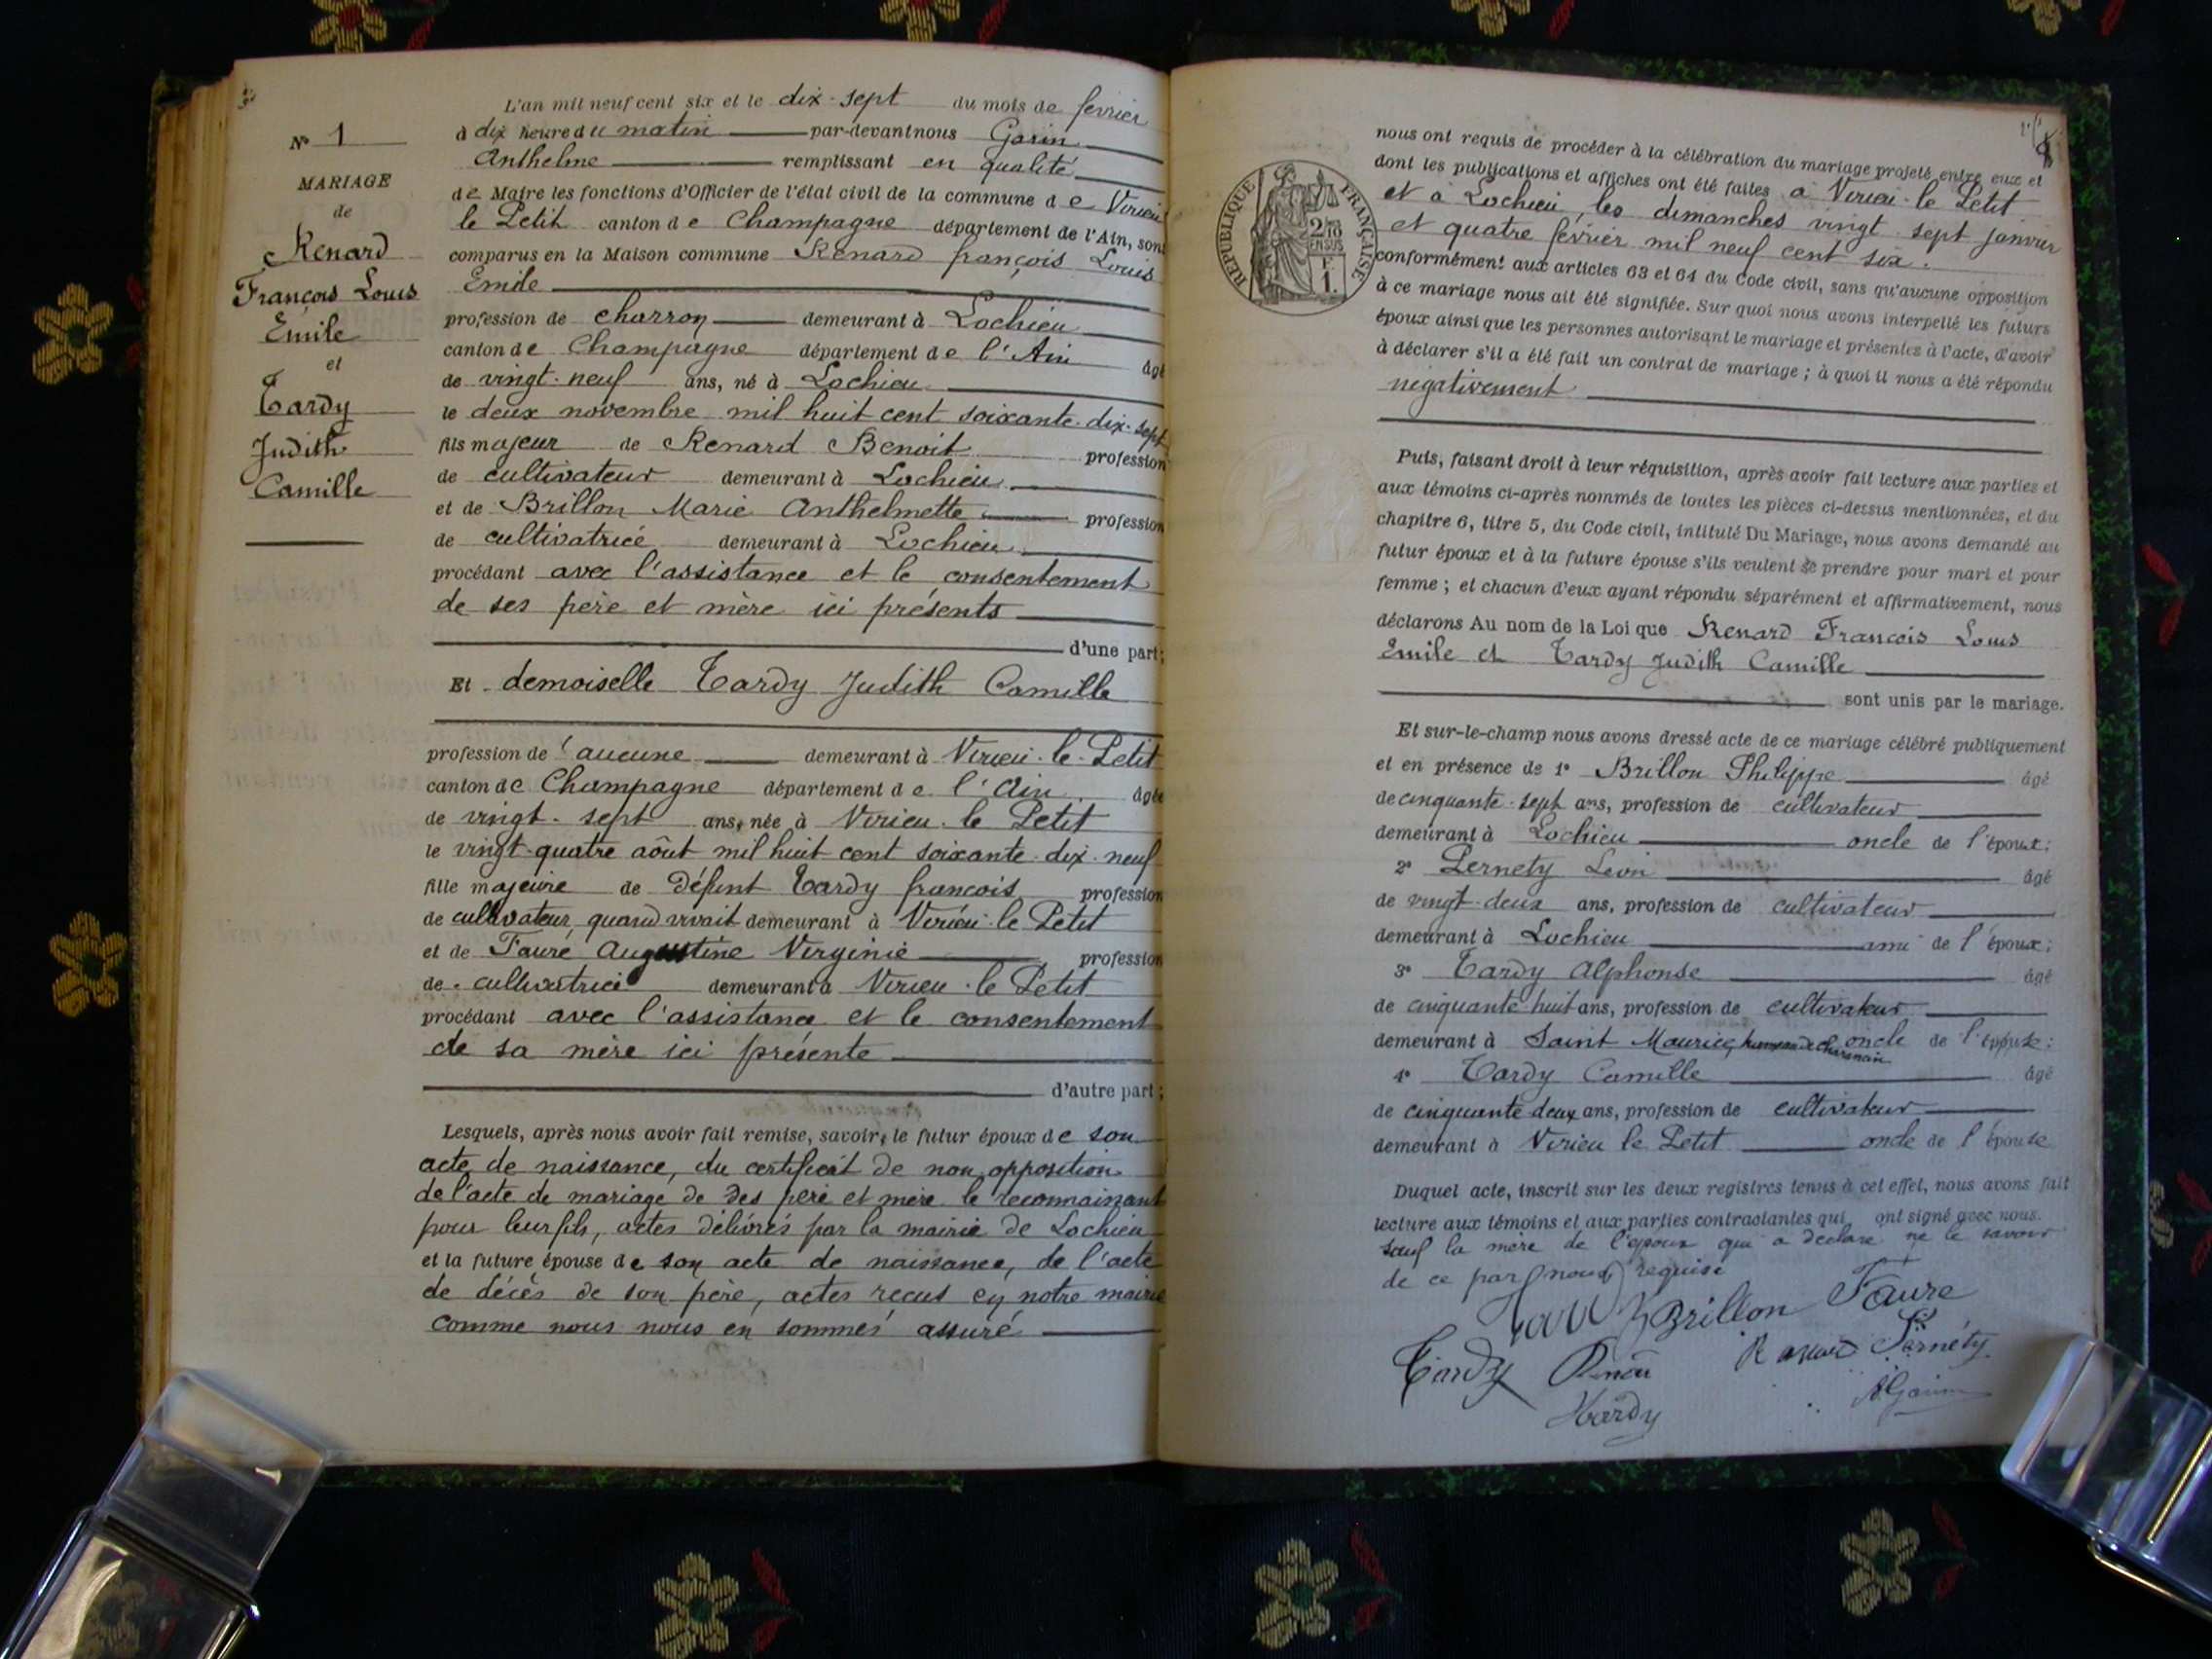 N° 1
MARIAGE
de
Renard
François Louis
Emile
et
Tardy
Judith
Camille
L'an mil neuf cent six et le dix-sept du mois de fevrier
à dix heure du matin par-devant nous Garin
Anthelme remplissant en qualité
de Maire les fonctions d'Officier de l'état civil de la commune de Virieu
le Petit canton de Champagne département de l'Ain, sont
comparus en la Maison commune Renard françois Louis
Emile
profession de charron demeurant à Lochieu
canton de Champagne département de l'Ain âgé
de vingt-neuf ans, né à Lochieu
le deux novembre mil huit cent soixante-dix-sept
fils majeur de Renard Benoit profession
de cultivateur demeurant à Lochieu
et de Brillon Marie Anthelmette profession
de cultivatrice demeurant à Lochieu
procédant avec l'assistance et le consentement
de ses père et mère ici présents
d'une part;
Et demoiselle Tardy Judith Camille
profession de aucune demeurant à Virieu-le-Petit
canton de Champagne département de l'Ain âgée
de vingt-sept ans, née à Virieu-le Petit
le vingt-quatre aôut mil huit cent soixante-dix-neuf
fille majeure de défunt Tardy françois profession
de cultivateur quand vivait demeurant à Virieu-le Petit
et de Faure Augustine Virginie profession
de cultivatrice demeurant à Virieu-le Petit
procédant avec l'assistance et le consentement
de sa mère ici présente
d'autre part;
Lesquels, après nous avoir fait remise, savoir, le futur époux de son
acte de naissance, du certificat de non opposition
de l'acte de mariage de ses père et mère le reconnaissant
pour leur fils, actes délivrés par la mairie de Lochieu
et la future épouse de son acte de naissance, de l'acte
de décès de son père, actes recus en notre mairie
comme nous nous en sommes assuré
REPUBLIQUE FRANÇAISE
2/10
EN SUS
F.
1.
nous ont requis de procéder à la célébration du mariage projeté entre eux et
dont les publications et affiches ont été faites à Virieu-le Petit
et à Lochieu, les dimanches vingt-sept janvier
et quatre fevrier mil neuf cent six.
conformément aux articles 63 et 64 du Code civil, sans qu'aucune opposition
à ce mariage nous ait été signifiée. Sur quoi nous avons interpellé les futurs
époux ainsi que les personnes autorisant le mariage et présentes à l'acte, d'avoir
à déclarer s'il a été fait un contrat de mariage; à quoi il nous a été répondu
négativement
Puis, faisant droit à leur réquisition, après avoir fait lecture aux parties et
aux témoins ci-après nommés de toutes les pièces ci-dessus mentionnées, et du
chapitre 6, titre 5, du Code civil, intitulé Du Mariage, nous avons demandé au
futur époux et à la future épouse s'ils veulent se prendre pour mari et pour
femme; et chacun d'eux ayant répondu séparément et affirmativement, nous
déclarons Au nom de la Loi que Renard François Louis
Emile et Tardy Judith Camille
sont unis par le mariage.
Et sur-le-champ nous avons dressé acte de ce mariage célébré publiquement
et en présence de 1° Brillon Philippe âgé
de cinquante-sept ans, profession de cultivateur
demeurant à Lochieu oncle de l'époux;
2° Pernety Leon âgé
de vingt-deux ans, profession de cultivateur
demeurant à Lochieu ami de l'époux;
3° Tardy Alphonse âgé
de cinquante huit ans, profession de cultivateur
demeurant à Saint Maurice, oncle de l'épouse;
4° Tardy Camille âgé
de cinquante deux ans, profession de cultivateur
demeurant à Virieu le Petit oncle de l'épouse
Duquel acte, inscrit sur les deux registres tenus à cet effet, nous avons fait
lecture aux témoins et aux parties contractantes qui ont signé avec nous.
sauf la mère de l'epoux qui a declaré ne le savoir
de ce par nous requise
Tardy Brillon Faure
Tardy Renard Pernéty
Tardy AGarin